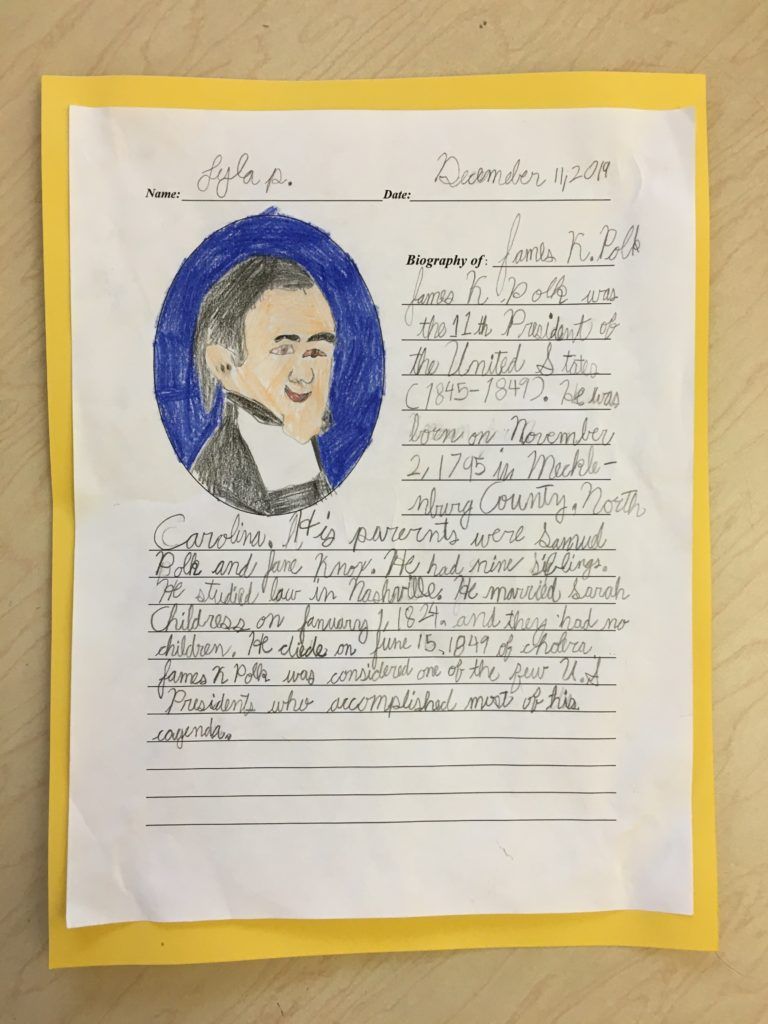 Name: Lyla p. Date: December 11, 2019
Biography of: James K. Polk
James K. Polk was
the 11th President of
the United States
(1845-1849). He was
born on November
2, 1795 in Meckle-
nburg County, North
Carolina. His parents were Samuel
Polk and Jane Knox. He had nine siblings.
He studied law in Nashville. He married Sarah
Childress on January 1, 1824. and they had no
children. He diede on June 15, 1849 of cholra
James K Polk was considered one of the few U.S
Presidents who accomplished most of his
cagenda.